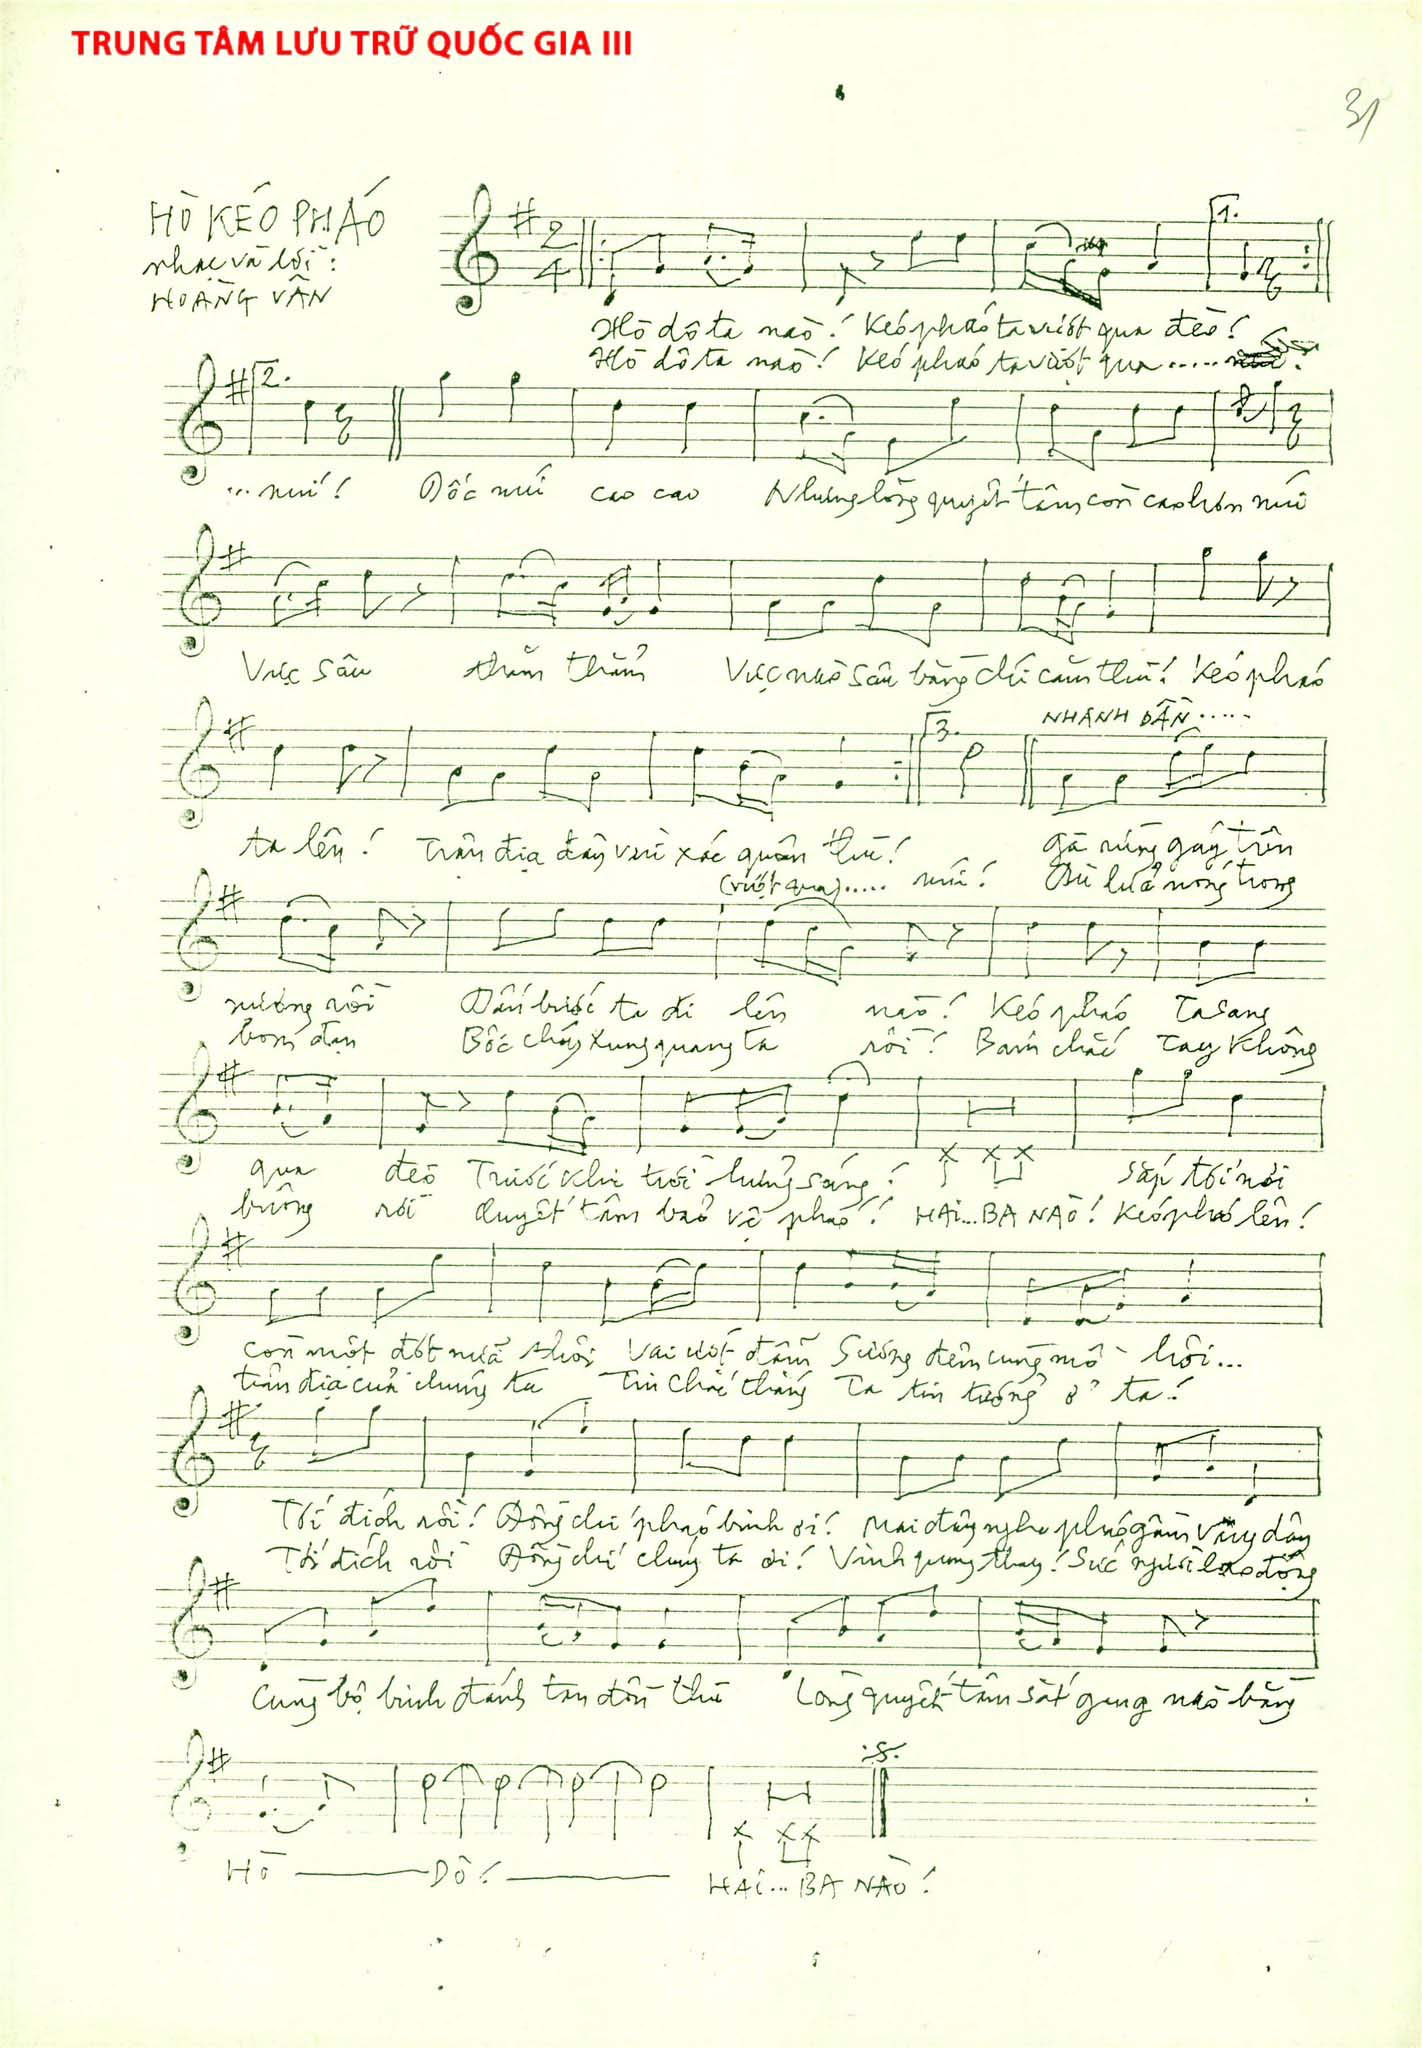 TRUNG TÂM LƯU TRỮ QUỐC GIA III
31
HÒ KÉO PHÁO
nhạc và lời:
HOÀNG VÂN
2
4
1.
Hò dô ta nào! Kéo pháo ta vượt qua đèo!
Hò dô ta nào! Kéo pháo ta vượt qua .....
2.
...núi! Dốc núi cao cao Nhưng lòng quyết tâm còn cao hơn núi
Vực sâu thăm thẳm Vực nào sâu bằng chí căm thù! Kéo pháo
3.
NHANH DẦN .....
ta lên! Trận địa đây vùi xác quân thù! Gà rừng gáy trên
(vượt qua) ..... núi! Dù lửa nóng trong
nương rồi Dấn bước ta đi lên nào! Kéo pháo ta sang
bom đạn Bốc cháy xung quang ta rồi! Bám chắc tay không
qua đèo Trước khi trời hửng sáng! Sắp tới nơi
buông rời Quyết tâm bảo vệ pháo! HAI... BA NÀO! Kéo pháo lên!
còn một đốt nữa thôi Vai ướt đầm Sương đêm cùng mồ hôi...
trận địa của chúng ta Tin chắc thắng Ta tin tưởng ở ta!
Tới đích rồi! Đồng chí pháo binh ơi! Mai đây nghe pháo gầm vùng dậy
Tới đích rồi Đồng chí chúng ta ơi! Vinh quang thay! Sức người lao động
Cùng bộ binh đánh tan đồn thù Lòng quyết tâm sắt gang nào bằng
Hò Dô! HAI... BA NÀO!